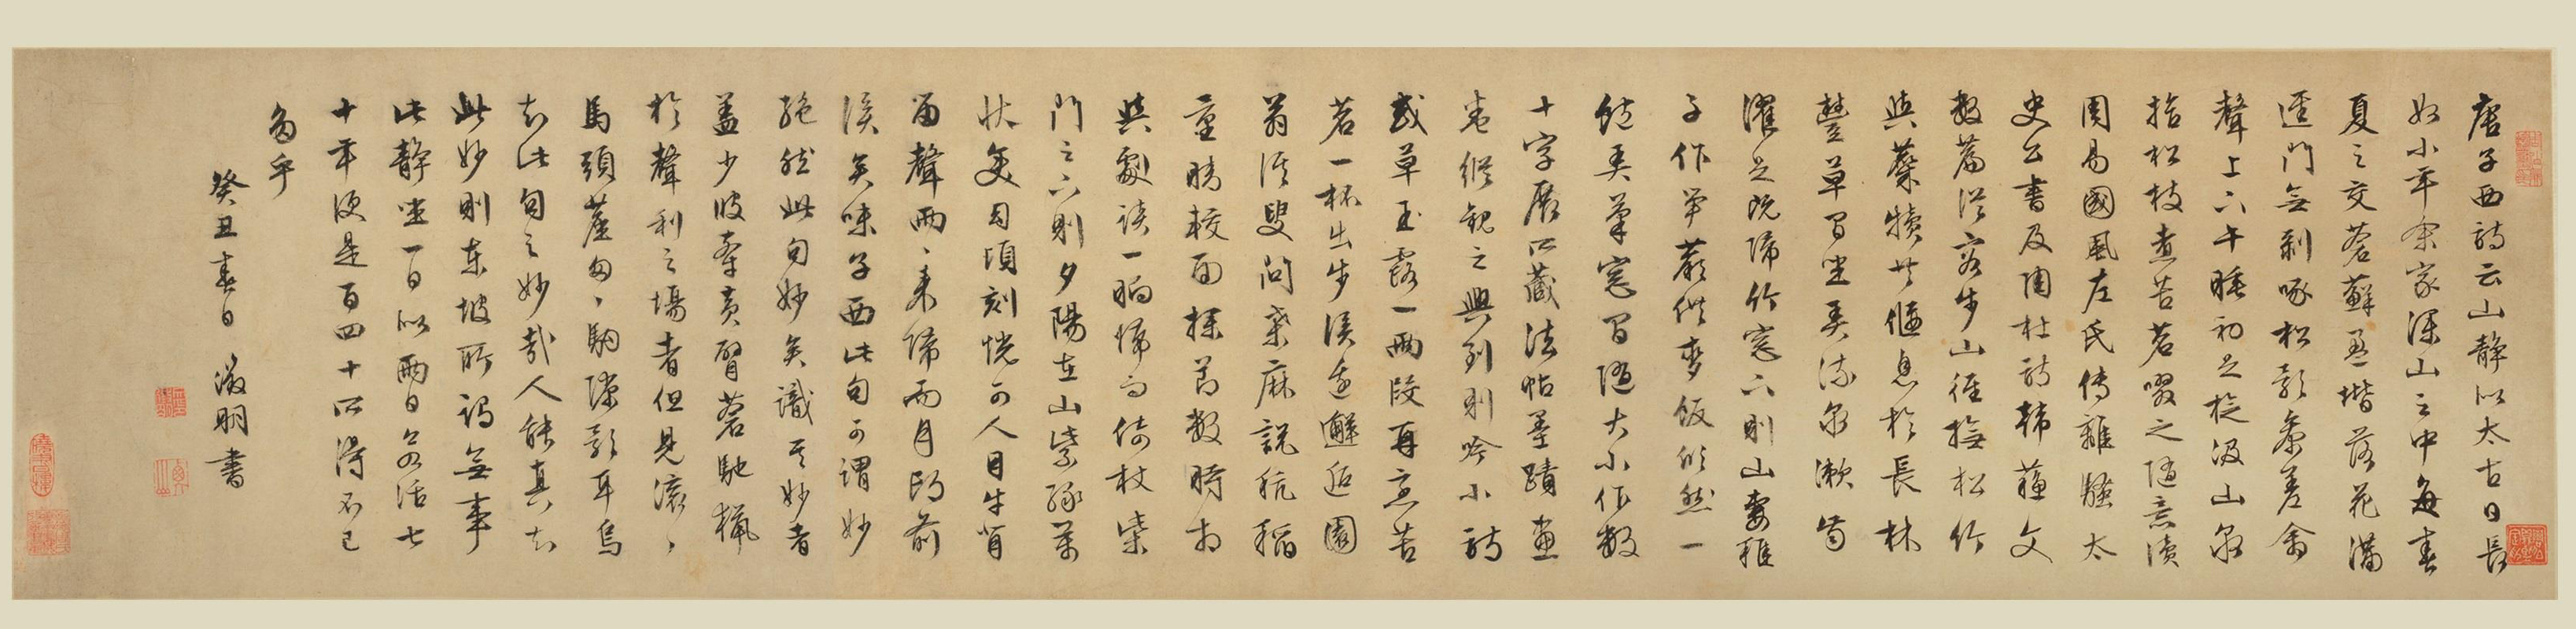 唐子西詩云山靜似太古日長
如小年余家深山之中每春
夏之交蒼蘚盈堦落花滿
逕門無剥啄松影參差禽
聲上下午睡初足旋汲山泉
拾松枝煮苦茗啜之隨意讀
周易國風左氏傳離騷太
史公書及陶杜詩韓蘇文
數篇從容步山徑撫松竹
與麋犢共偃息於長林
豐草間坐弄流泉漱齒
濯足既歸竹窓下則山妻稚
子作笋蕨供麥飯欣然一
飽弄筆窓間隨大小作數
十字展所藏法帖墨蹟畫
卷縱觀之興到則吟小詩
或草玉露一兩段再烹苦
茗一杯出步溪邊邂逅園
翁溪叟問桑麻說秔稻
量晴校雨探節數時相
與劇談一餉歸而倚杖柴
門之下則夕陽在山紫綠萬
狀變幻頃刻恍可人目牛背
笛聲兩〻來歸而月印前
溪矣味子西此句可謂妙
絕然此句妙矣識其妙者
蓋少彼牽黃臂蒼馳獵
於聲利之場者但見滾〻
馬頭塵匆〻駒隙影耳烏
知此句之妙哉人能真知
此妙則東坡所謂無事
此靜坐一日似兩日若活七
十年便是百四十所得不已
多乎
癸丑春日 徵明書